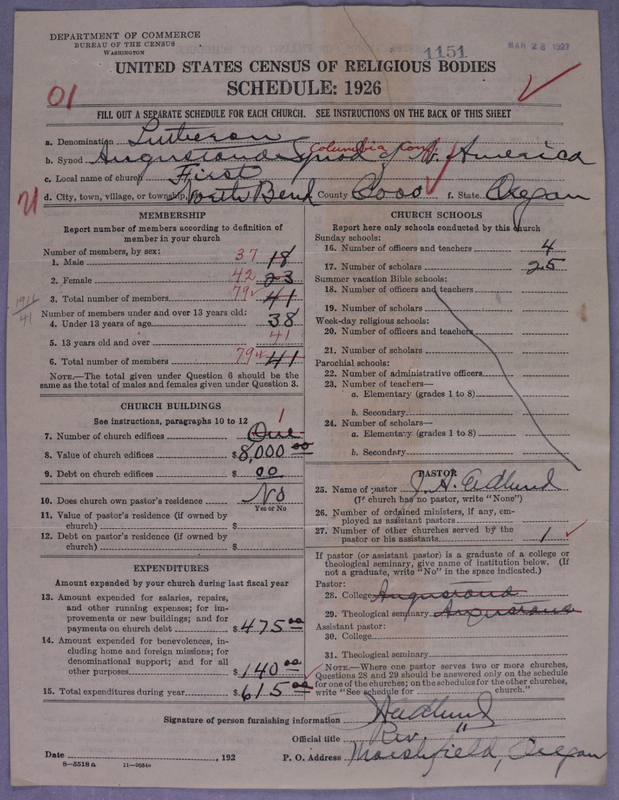 DEPARTMENT OF COMMERCE
BUREAU OF THE CENSUS
WASHINGTON
1151
MAR 28 1927
UNITED STATES CENSUS OF RELIGIOUS BODIES
SCHEDULE: 1926
01
FILL OUT A SEPARATE SCHEDULE FOR EACH CHURCH. SEE INSTRUCTIONS ON THE BACK OF THIS SHEET
a. Denomination Lutheran
Columbia Conf.
b. Synod Augustana Synod of N. America
c. Local name of church First
d. City, town, village, or township North Bend County Coos f. State Oregon
21
MEMBERSHIP
Report number of members according to definition of
member in your church
Number of members, by sex:
1. Male 37 18
2. Female 42 23
3. Total number of members 79 41
1916
41
Number of members under and over 13 years old:
4. Under 13 years of age 38
5. 13 years old and over 41
6. Total number of members 79 41
NOTE.—The total given under Question 6 should be the
same as the total of males and females given under Question 3.
CHURCH BUILDINGS
See instructions, paragraphs 10 to 12
7. Number of church edifices One 1
8. Value of church edifices $8,000 00
9. Debt on church edifices $ 00
10. Does church own pastor's residence No
Yes or No
11. Value of pastor's residence (if owned by
church) $
12. Debt on pastor's residence (if owned by
church) $
EXPENDITURES
Amount expended by your church during last fiscal year
13. Amount expended for salaries, repairs,
and other running expenses; for im-
provements or new buildings; and for
payments on church debt $475 00
14. Amount expended for benevolences, in-
cluding home and foreign missions; for
denominational support; and for all
other purposes $140 00
15. Total expenditures during year $615 00
CHURCH SCHOOLS
Report here only schools conducted by this church
Sunday schools:
16. Number of officers and teachers 4
17. Number of scholars 25
Summer vacation Bible schools:
18. Number of officers and teachers
19. Number of scholars
Week-day religious schools:
20. Number of officers and teachers
21. Number of scholars
Parochial schools:
22. Number of administrative officers
23. Number of teachers—
a. Elementary (grades 1 to 8)
b. Secondary
24. Number of scholars—
a. Elementary (grades 1 to 8)
b. Secondary
PASTOR
25. Name of pastor J. H. Edlund
(If church has no pastor, write "None")
26. Number of ordained ministers, if any, em-
ployed as assistant pastors
27. Number of other churches served by the
pastor or his assistants 1
If pastor (or assistant pastor) is a graduate of a college or
theological seminary, give name of institution below. (If
not a graduate, write "No" in the space indicated.)
Pastor:
28. College Augustana
29. Theological seminary Augustana
Assistant pastor:
30. College
31. Theological seminary
NOTE.—Where one pastor serves two or more churches,
Questions 28 and 29 should be answered only on the schedule
for one of the churches; on the schedules for the other churches,
write "See schedule for church."
Signature of person furnishing information
Official title Rev. "
Date , 192 P. O. Address Marshfield, Oregon
8—5518 a